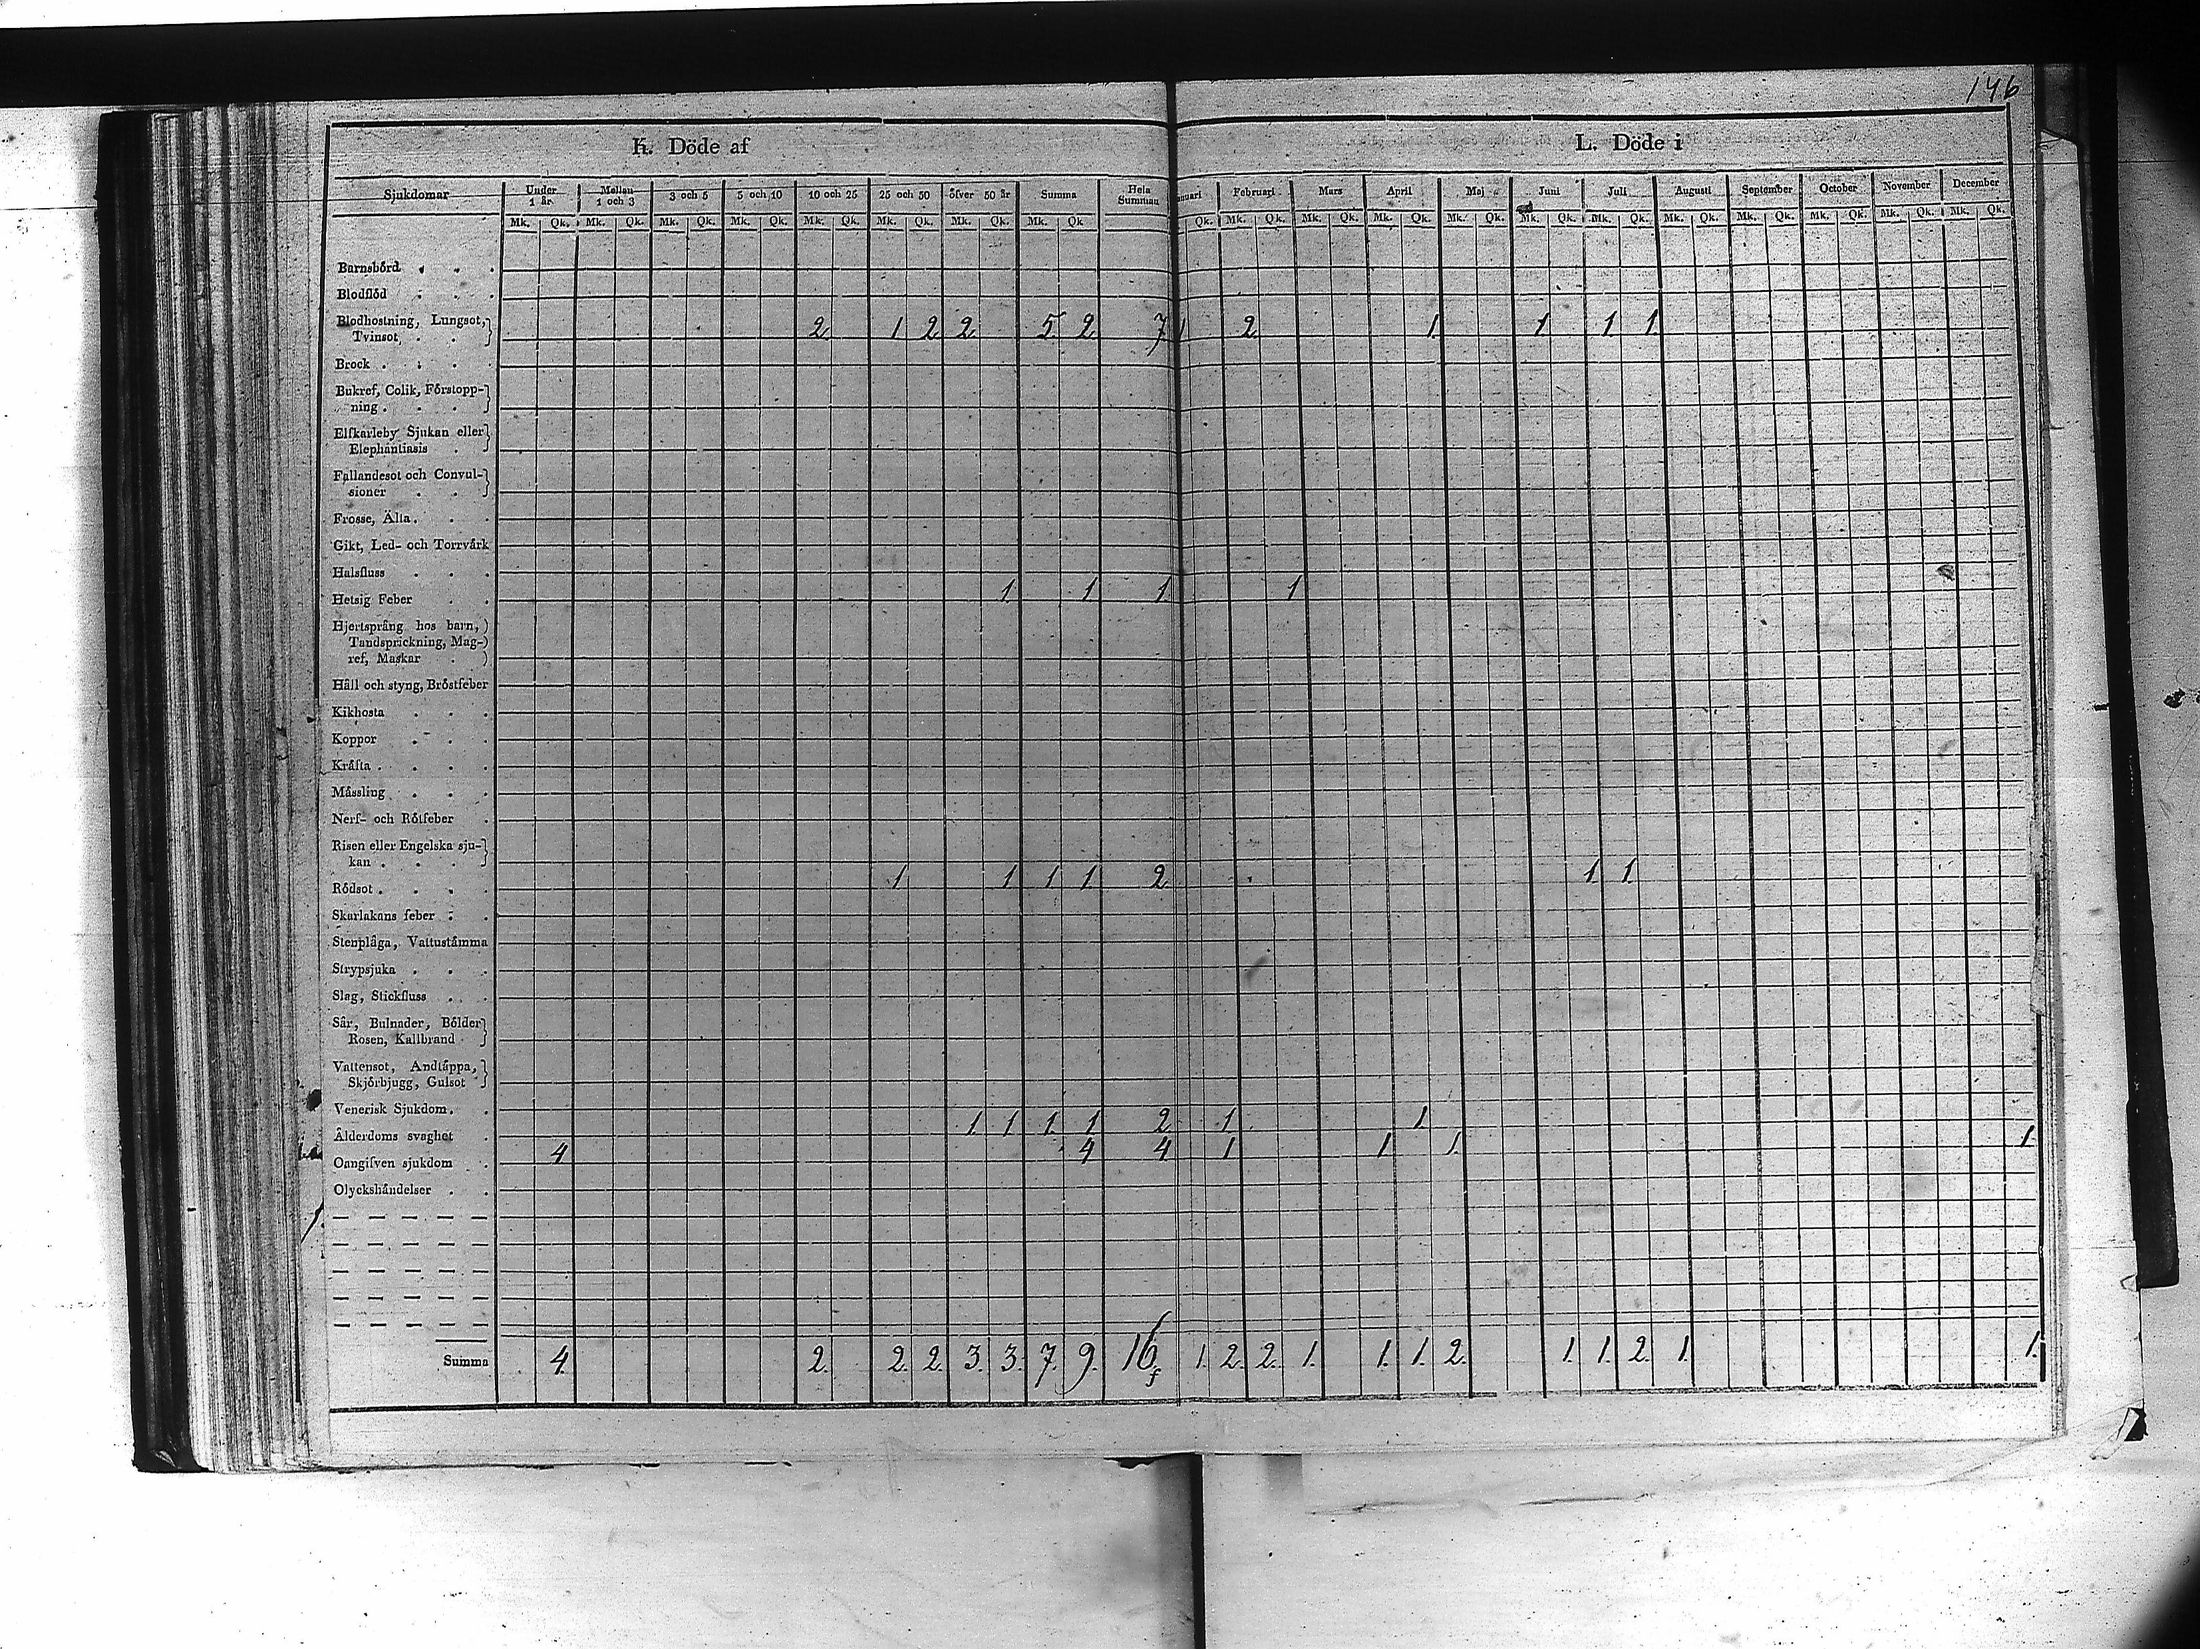 146
K. Döde af L. Döde i
Sjukdomar Under 1 år Mellan 1 och 3 3 och 5 5 och 10 10 och 25 25 och 50 öfver 50 år Summa Hela Summan nuari Februari Mars April Maj Juni Juli Augusti September October November December
Mk. Qk. Mk. Qk. Mk. Qk. Mk. Qk. Mk. Qk. Mk. Qk. Mk. Qk. Mk. Qk Qk. Mk. Qk. Mk. Qk. Mk. Qk. Mk. Qk. Mk. Qk. Mk. Qk. Mk. Qk. Mk. Qk. Mk. Qk. Mk. Qk. Mk. Qk.
Barnsbörd
Blodflöd
Blodhostning, Lungsot,
Tvinsot 2. 1 2. 2. 5. 2. 7. 1 2. 1. 1 1. 1.
Brock
Bukref, Colik, Förstopp-
ning
Elfkarleby Sjukan eller
Elephantiasis
Fallandesot och Convul-
sioner
Frosse, Älta
Gikt, Led- och Torrvärk
Halsfluss
Hetsig Feber 1. 1 1 1
Hjertsprång hos barn,
Tandsprickning, Mag-
ref, Maskar
Håll och styng, Bröstfeber
Kikhosta
Koppor
Kräfta
Mässling
Nerf- och Rötfeber
Risen eller Engelska sju-
kan
Rödsot 1 1 1 1 2 1. 1.
Skarlakans feber
Stenplåga, Vattustämma
Strypsjuka
Slag, Stickfluss
Sår, Bulnader, Bölder
Rosen, Kallbrand
Vattensot, Andtäppa,
Skjörbjugg, Gulsot
Venerisk Sjukdom
Ålderdoms svaghet 1. 1 1. 1 2. 1 1
Oangifven sjukdom 4 4 4 1 1 1. 1.
Olyckshändelser
Summa 4. 2. 2. 2. 3. 3. 7. 9. 16 1. 2. 2. 1. 1. 1. 2. 1. 1. 2. 1. 1.